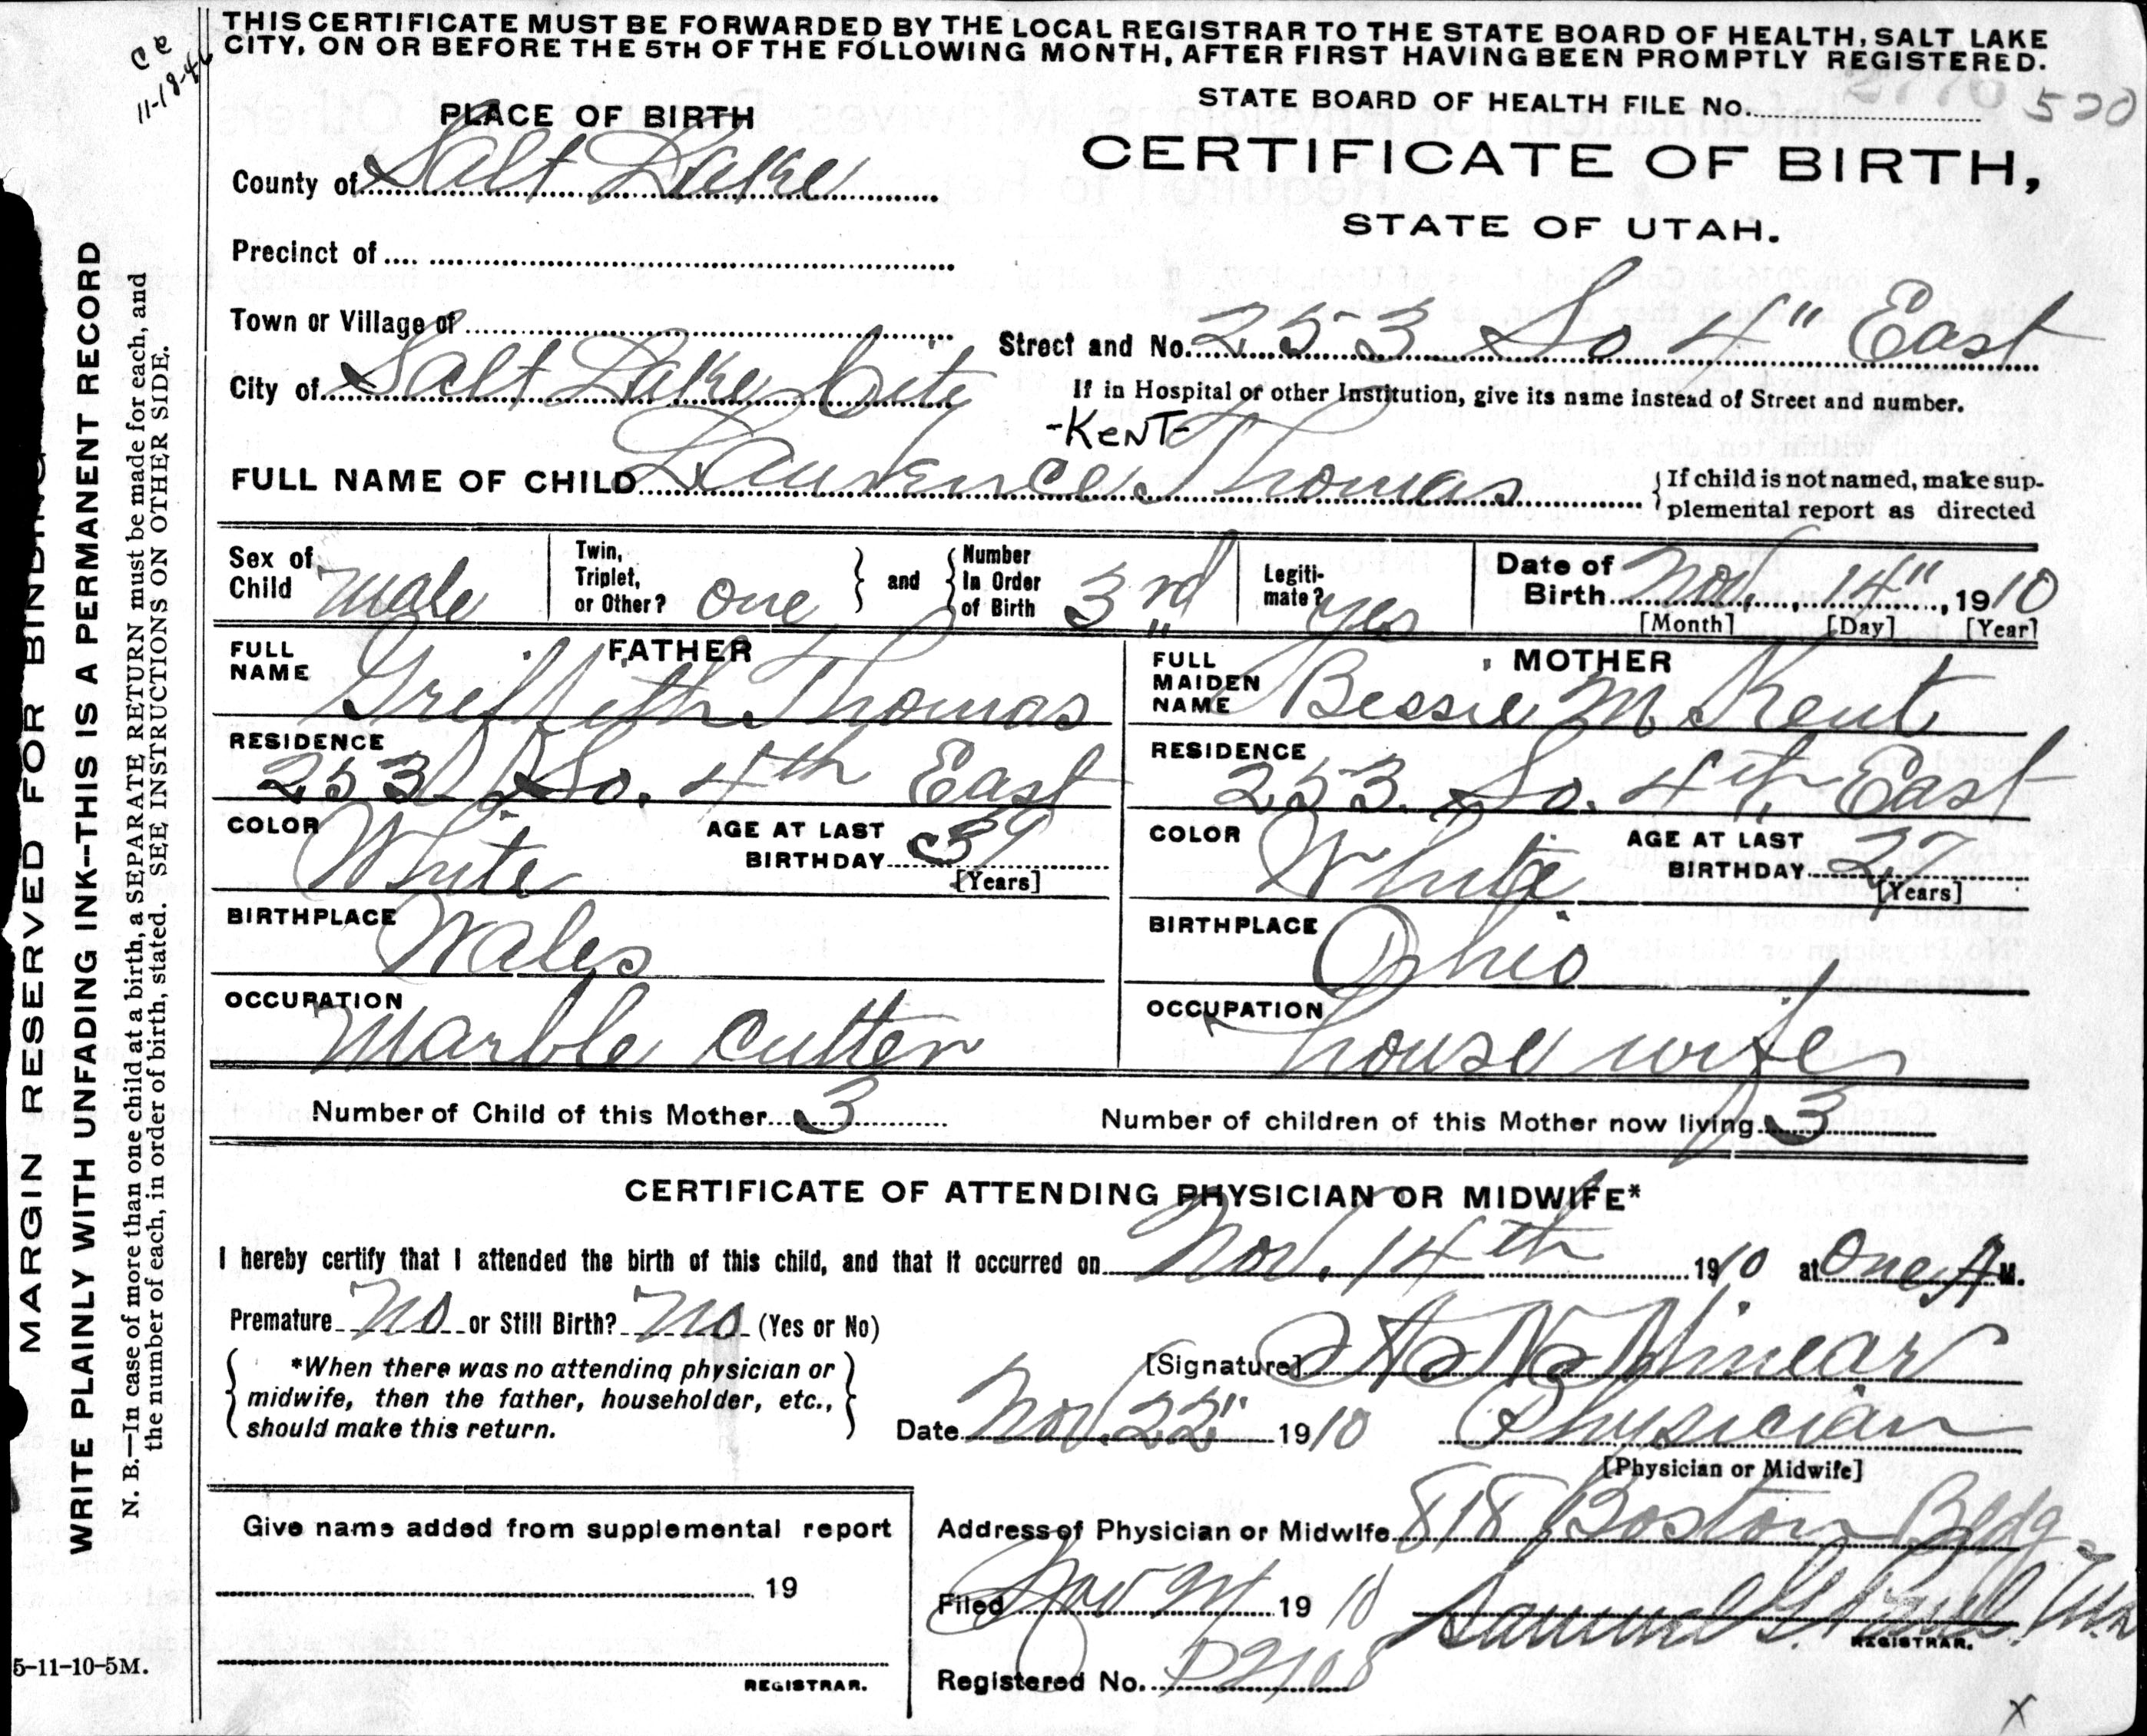 THIS CERTIFICATE MUST BE FORWARDED BY THE LOCAL REGISTRAR TO THE STATE BOARD OF HEALTH, SALT LAKE
CITY, ON OR BEFORE THE 5TH OF THE FOLLOWING MONTH, AFTER FIRST HAVING BEEN PROMPTLY REGISTERED.
11-18-46
STATE BOARD OF HEALTH FILE No. 2776 520
CERTIFICATE OF BIRTH,
STATE OF UTAH.
PLACE OF BIRTH
County of Salt Lake
Precinct of
Town or Village of
City of Salt Lake City
Street and No. 253 So 4" East
If in Hospital or other Institution, give its name instead of Street and number.
-KeNT-
FULL NAME OF CHILD Laurence Thomas
If child is not named, make sup-
plemental report as directed
Sex of Child Male
Twin, Triplet, or Other? One and Number In Order of Birth 3rd
Legiti-mate? Yes
Date of Birth Nov. 14", 1910
[Month] [Day] [Year]
FATHER
FULL NAME Griffith Thomas
RESIDENCE
253 So. 4th East
COLOR White AGE AT LAST BIRTHDAY 39
[Years]
BIRTHPLACE Wales
OCCUPATION Marble Cutter
MOTHER
FULL MAIDEN NAME Bessie M Kent
RESIDENCE
253. So. 4th East
COLOR White AGE AT LAST BIRTHDAY 27
[Years]
BIRTHPLACE Ohio
OCCUPATION house wife
Number of Child of this Mother 3 Number of children of this Mother now living 3
CERTIFICATE OF ATTENDING PHYSICIAN OR MIDWIFE*
I hereby certify that I attended the birth of this child, and that it occurred on Nov. 14th 1910 at One A M.
Premature No or Still Birth? No (Yes or No)
*When there was no attending physician or
midwife, then the father, householder, etc.,
should make this return.
[Signature] Minear
Date Nov. 22" 1910 Physician
[Physician or Midwife]
Address of Physician or Midwife 818 Boston Bldg
Filed Nov 1910 Samuel G. Paul
REGISTRAR.
Registered No.
Give name added from supplemental report
19
REGISTRAR.
5-11-10-5M.
X
MARGIN RESERVED FOR BINDING
WRITE PLAINLY WITH UNFADING INK--THIS IS A PERMANENT RECORD
N. B.—In case of more than one child at a birth, a SEPARATE RETURN must be made for each, and
the number of each, in order of birth, stated. SEE INSTRUCTIONS ON OTHER SIDE.